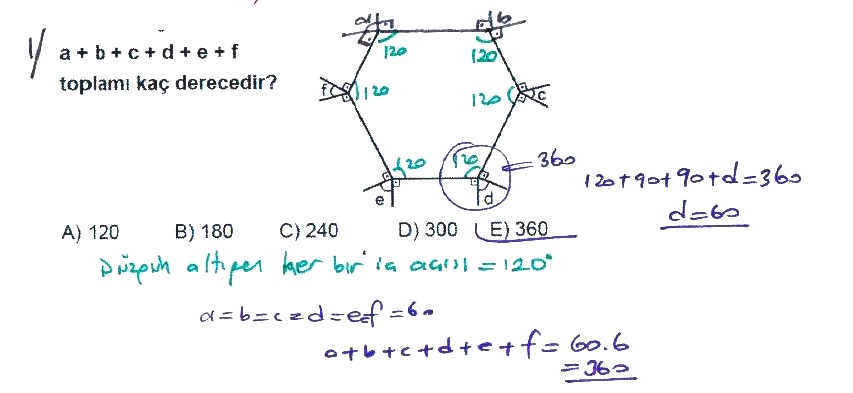 1/
a + b + c + d + e + f
toplamı kaç derecedir?
a b
120 120
f 120 120 c
120 120 360
e d
120+90+90+d=360
d=60
A) 120 B) 180 C) 240 D) 300 E) 360
Düzgün altıgen her bir iç açısı = 120°
a=b=c=d=e=f=60
a+b+c+d+e+f = 60.6
= 360